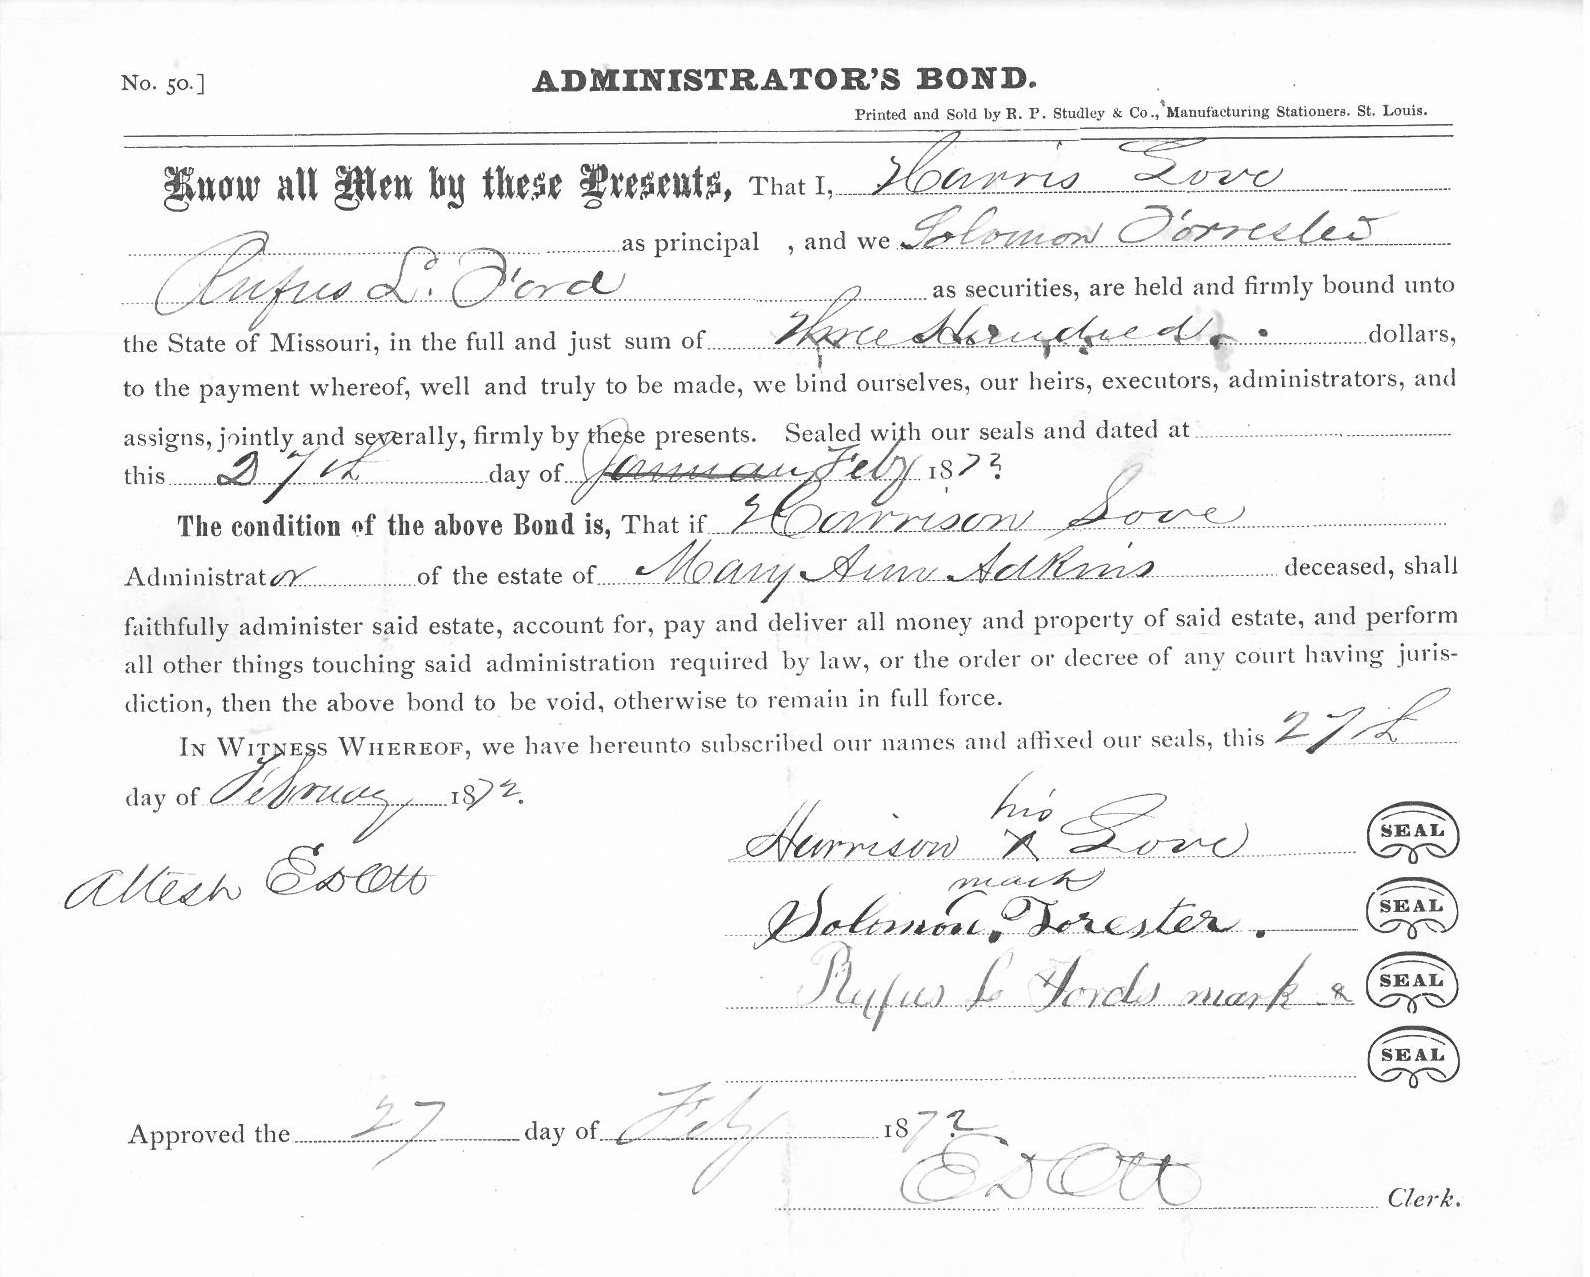 No. 50.]
ADMINISTRATOR'S BOND.
Printed and Sold by R. P. Studley & Co., Manufacturing Stationers. St. Louis.
Know all Men by these Presents, That I, Harris Love
as principal , and we Solomon Forrester
Rufus L. Ford as securities, are held and firmly bound unto
the State of Missouri, in the full and just sum of Three Hundred dollars,
to the payment whereof, well and truly to be made, we bind ourselves, our heirs, executors, administrators, and
assigns, jointly and severally, firmly by these presents. Sealed with our seals and dated at
this 27th day of January Feby 1872
The condition of the above Bond is, That if Harrison Love
Administrator of the estate of Mary Ann Adkins deceased, shall
faithfully administer said estate, account for, pay and deliver all money and property of said estate, and perform
all other things touching said administration required by law, or the order or decree of any court having juris-
diction, then the above bond to be void, otherwise to remain in full force.
In Witness Whereof, we have hereunto subscribed our names and affixed our seals, this 27th
day of February 1872.
his
Harrison X Love SEAL
mark
Attest E D Ott
Solomon, Forester. SEAL
Rufus L Fords mark x SEAL
SEAL
Approved the 27 day of Feby 1872
E D Ott Clerk.